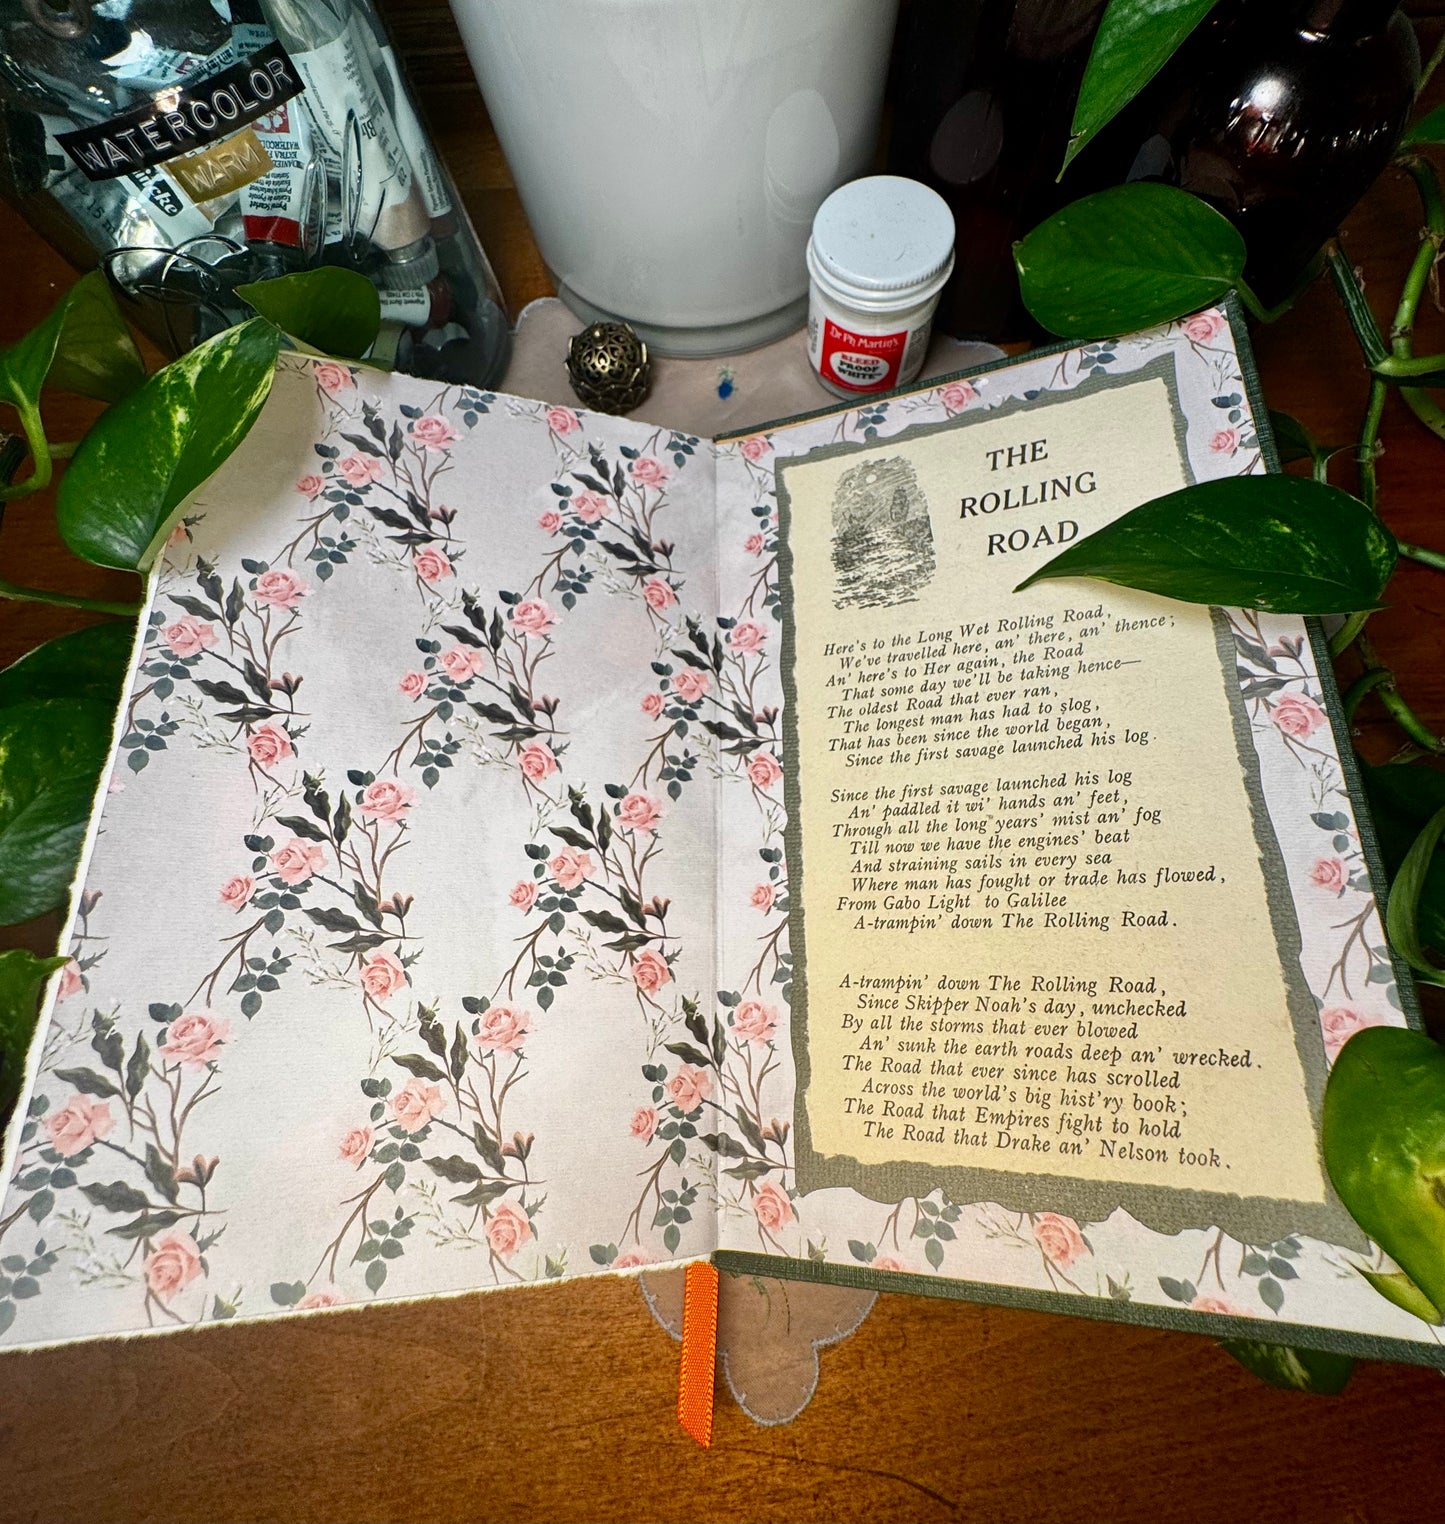 WATERCOLOR
WARM
Dr. Ph. Martin's
BLEED
PROOF
WHITE
THE
ROLLING
ROAD
Here's to the Long Wet Rolling Road,
We've travelled here, an' there, an' thence;
An' here's to Her again, the Road
That some day we'll be taking hence—
The oldest Road that ever ran,
The longest man has had to slog,
That has been since the world began,
Since the first savage launched his log.
Since the first savage launched his log
An' paddled it wi' hands an' feet,
Through all the long years' mist an' fog
Till now we have the engines' beat
And straining sails in every sea
Where man has fought or trade has flowed,
From Gabo Light to Galilee
A-trampin' down The Rolling Road.
A-trampin' down The Rolling Road,
Since Skipper Noah's day, unchecked
By all the storms that ever blowed
An' sunk the earth roads deep an' wrecked.
The Road that ever since has scrolled
Across the world's big hist'ry book;
The Road that Empires fight to hold
The Road that Drake an' Nelson took.